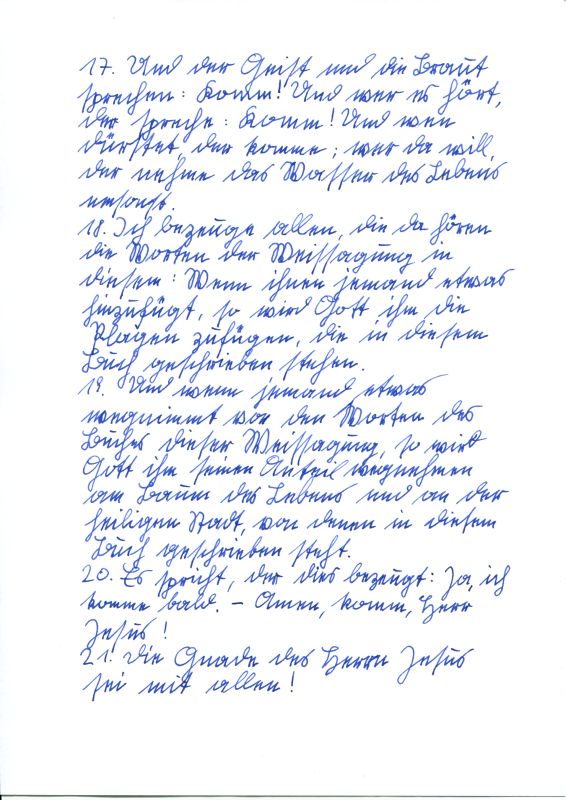 17. Und der Geist und die Braut
sprechen: Komm! Und wer es hört,
der spreche: Komm! Und wen
dürstet, der komme; wer da will,
der nehme das Wasser des Lebens
umsonst.
18. Ich bezeuge allen, die da hören
die Worten der Weissagung in
diesem: Wenn ihnen jemand etwas
hinzufügt, so wird Gott ihm die
Plagen zufügen, die in diesem
Buch geschrieben stehen.
19. Und wenn jemand etwas
wegnimmt von den Worten des
Buches dieser Weissagung, so wird
Gott ihm seinen Anteil wegnehmen
am Baum des Lebens und an der
heiligen Stadt, von denen in diesem
Buch geschrieben steht.
20. Es spricht, der dies bezeugt: Ja, ich
komme bald. – Amen, komm, Herr
Jesus!
21. Die Gnade des Herrn Jesus
sei mit allen!